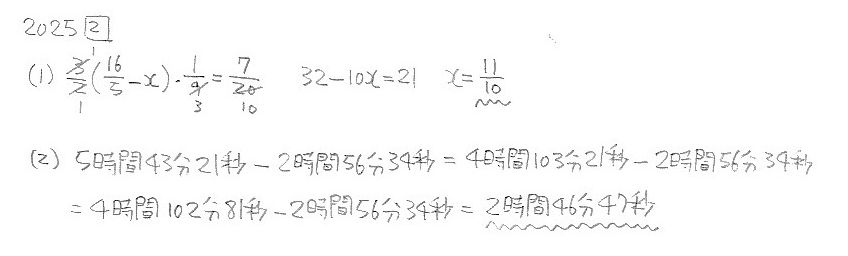 2025 2
(1) 3/2(16/5-x)・1/9=7/20 32-10x=21 x=11/10
(2) 5時間43分21秒-2時間56分34秒=4時間103分21秒-2時間56分34秒
=4時間102分81秒-2時間56分34秒=2時間46分47秒